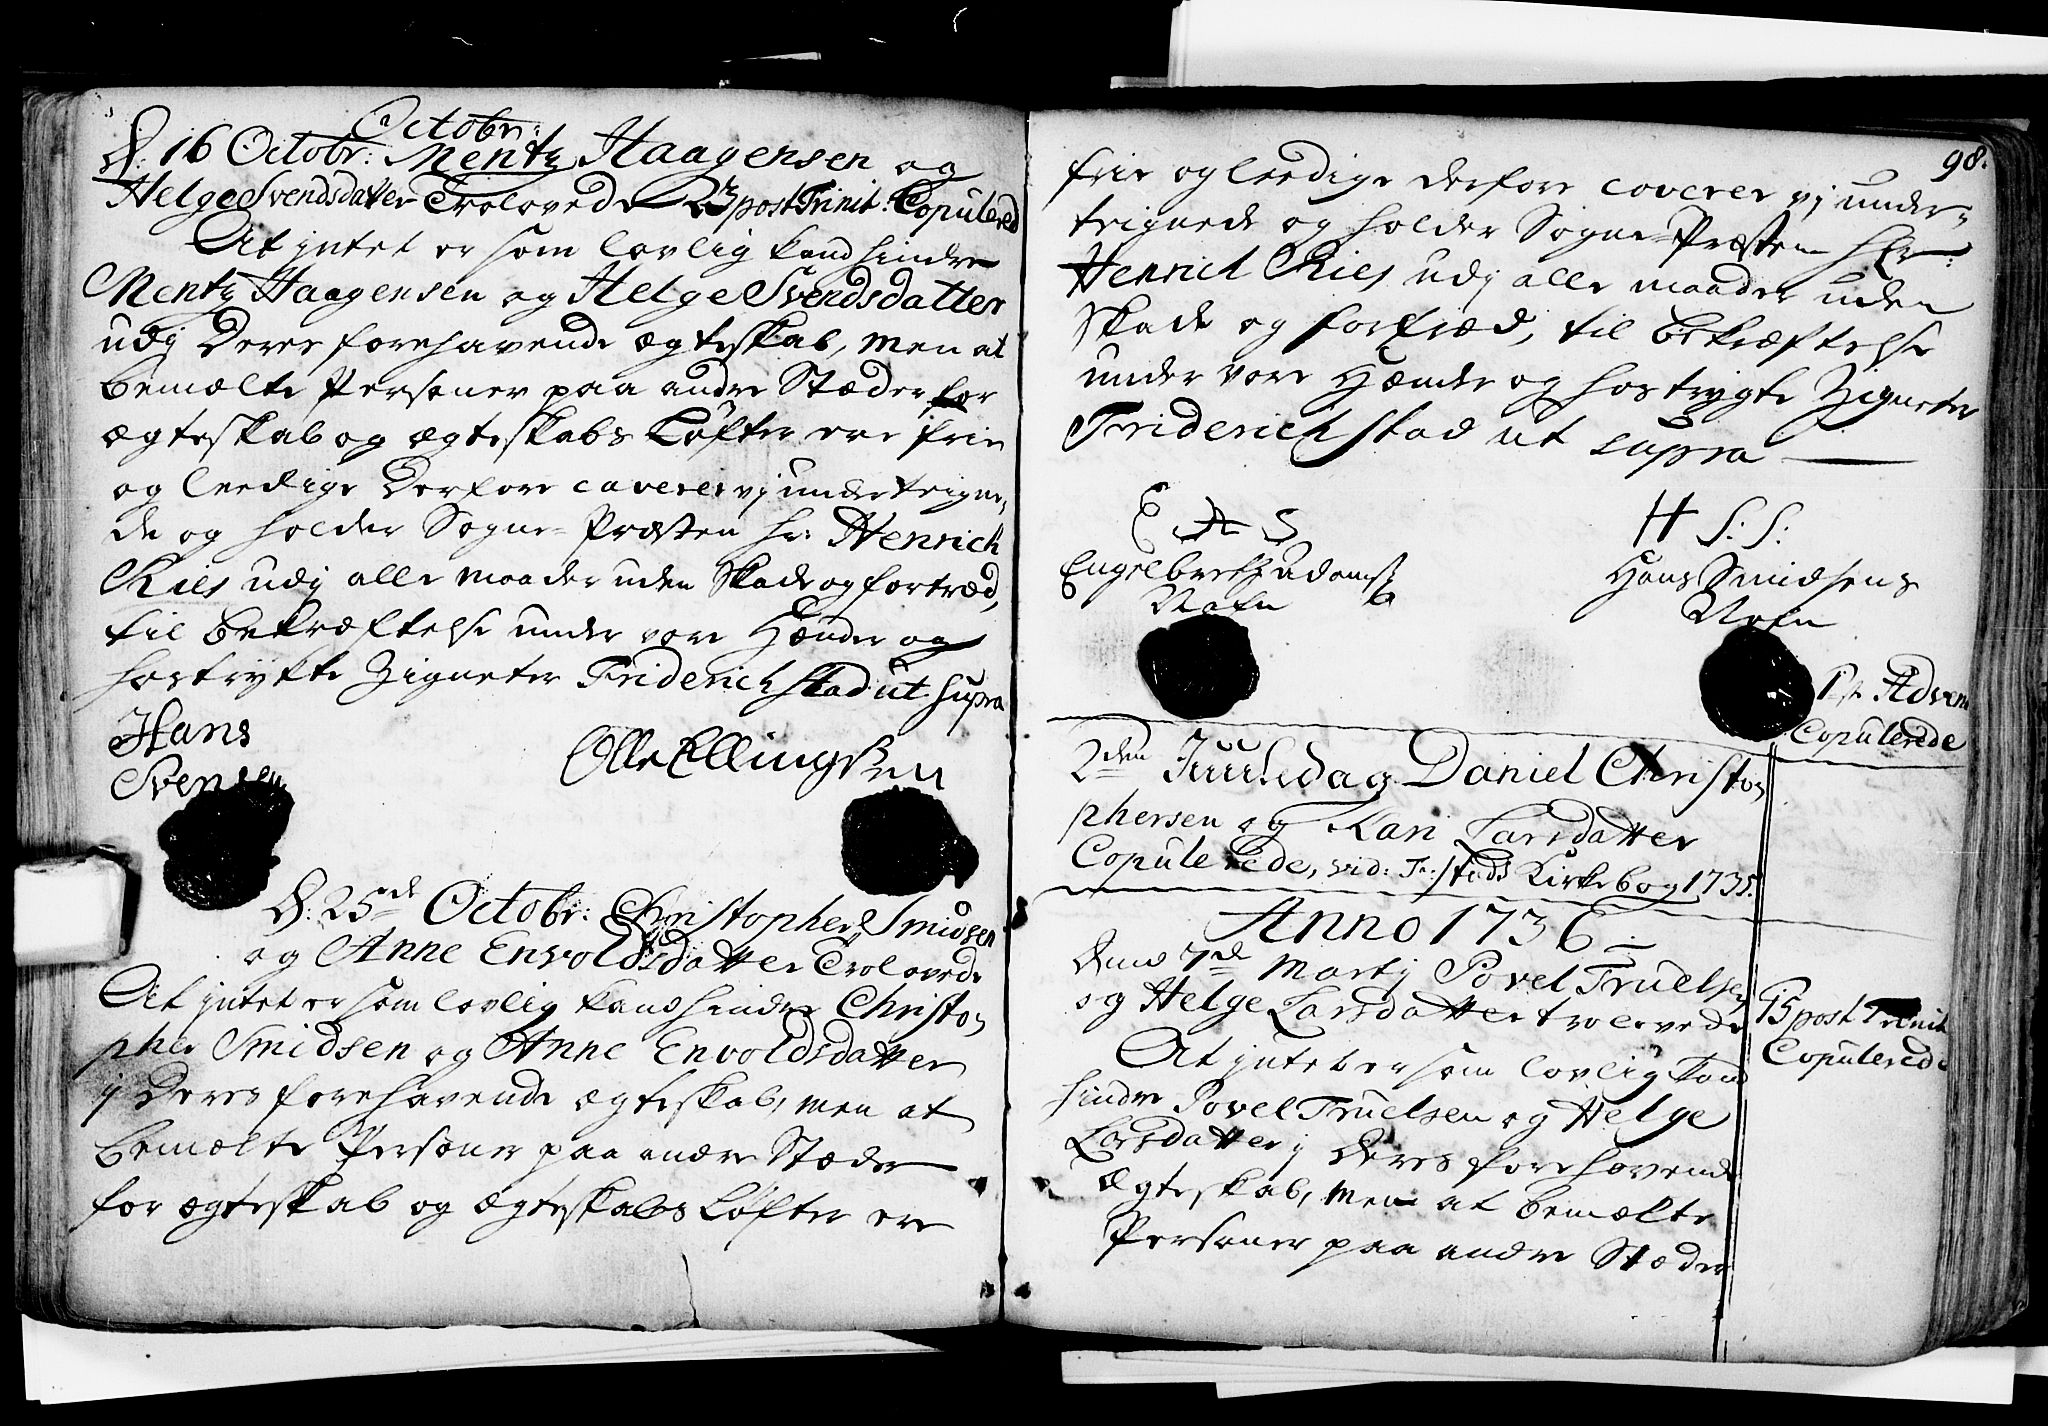 Octobr:
D: 16 Octobr: Mentz Haagensen og
Helge Svendsdatter Trolovede 23 post Trinit: Copulered
At jntet er som lovlig kand hindre
Mentz Haagensen og Helge Svendsdatter
udj Deres forehavende ægteskab, men at
bemælte Personer paa andre Stæder for
ægteskab og ægteskabs Løfter ere frie
og leedige Derfore caverer vj undertegne,
de og holder Sogne-Præsten hr: Henrich
Ries udj alle maader uden Skade og fortræd,
til bekræftelse under vore Hænder og
hostrykte Zigneter Friderichstad ut supra
Hans
Svensen
Olle Ellingsen
D: 25de Octobr: Christopher Smidsen
og Anne Envoldsdatter Trolovede
At jntet er som lovlig kand hindre Christo,
pher Smidsen og Anne Envoldsdatter
j Deres forehavende ægteskab, men at
bemælte Personer paa andre Stæder
for ægteskab og ægteskabs Løfter ere
98.
frie og leedige derfore caverer vj under,
teignede og holder Sogne-Præsten Hr:
Henrich Ries udj alle maader uden
Skade og fortræd, til bekræftelse
under vore Hænder og hostrygte Zigneter
Friderichstad ut supra
E A S
H S: S:
Engelbret Adams
Hans Smidsens
Nafn
Nafn
1st Advent
Copulerede
2den Juuledag Daniel Christo,
phersen og Kari Larsdatter
Copulerede, vid: Fr:stads Kirkebog 1735.
Anno 1736
Dend 7de Martij Povel Truelsen
og Helge Larsdatter trolovede
15 post Trinit
Copulerede
At jntet er som lovlig kand
hindre Povel Truelsen og Helge
Larsdatter j Deres forehavende
Ægteskab, men at bemælte
Personer paa andre Stæder